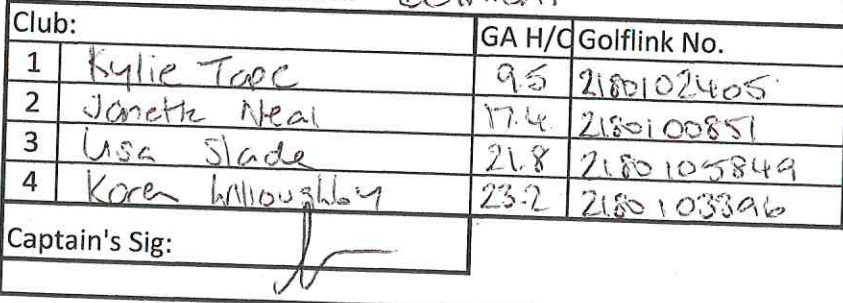 Club: GA H/C Golflink No.
1 Kylie Tape 9.5 2180102405
2 Janette Neal 17.4 2180100851
3 Lisa Slade 21.8 2180105849
4 Karen Willoughby 23.2 2180103396
Captain's Sig: